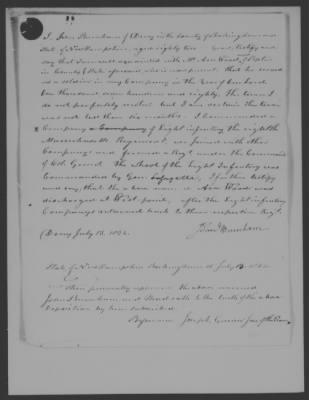 I, John Burnham of Derry in the County of Rockingham and
State of New Hampshire, aged eighty two years, testify and
say that I am well acquainted with Mr. Asa Ward, of
in County & State aforesaid, who is now present. that he served
as a soldier in my Company in the year of our Lord
One thousand seven hundred and eighty. The term I
do not perfectly recollect but I am certain the term
was not less than six months. I commanded a
Company of Light infantry the eighth
Massachusetts Regiment, we joined with other
Companys and formed a Regt. under the Command
of Col. The whole of the Light Infantry was
Commanded by Gen. Lafayette, I further testify
and say, that the above name'd Asa Ward was
discharged at West point, after the Light infantry
Companys returned back to their respective Regts.
Derry July 13. 1832.
John Burnham
State of New Hampshire Rockingham ss July
Then personally appeared the above named
John Burnham, and made oath to the truth of the above
Deposition by him subscribed
Before me Justice of the Peace